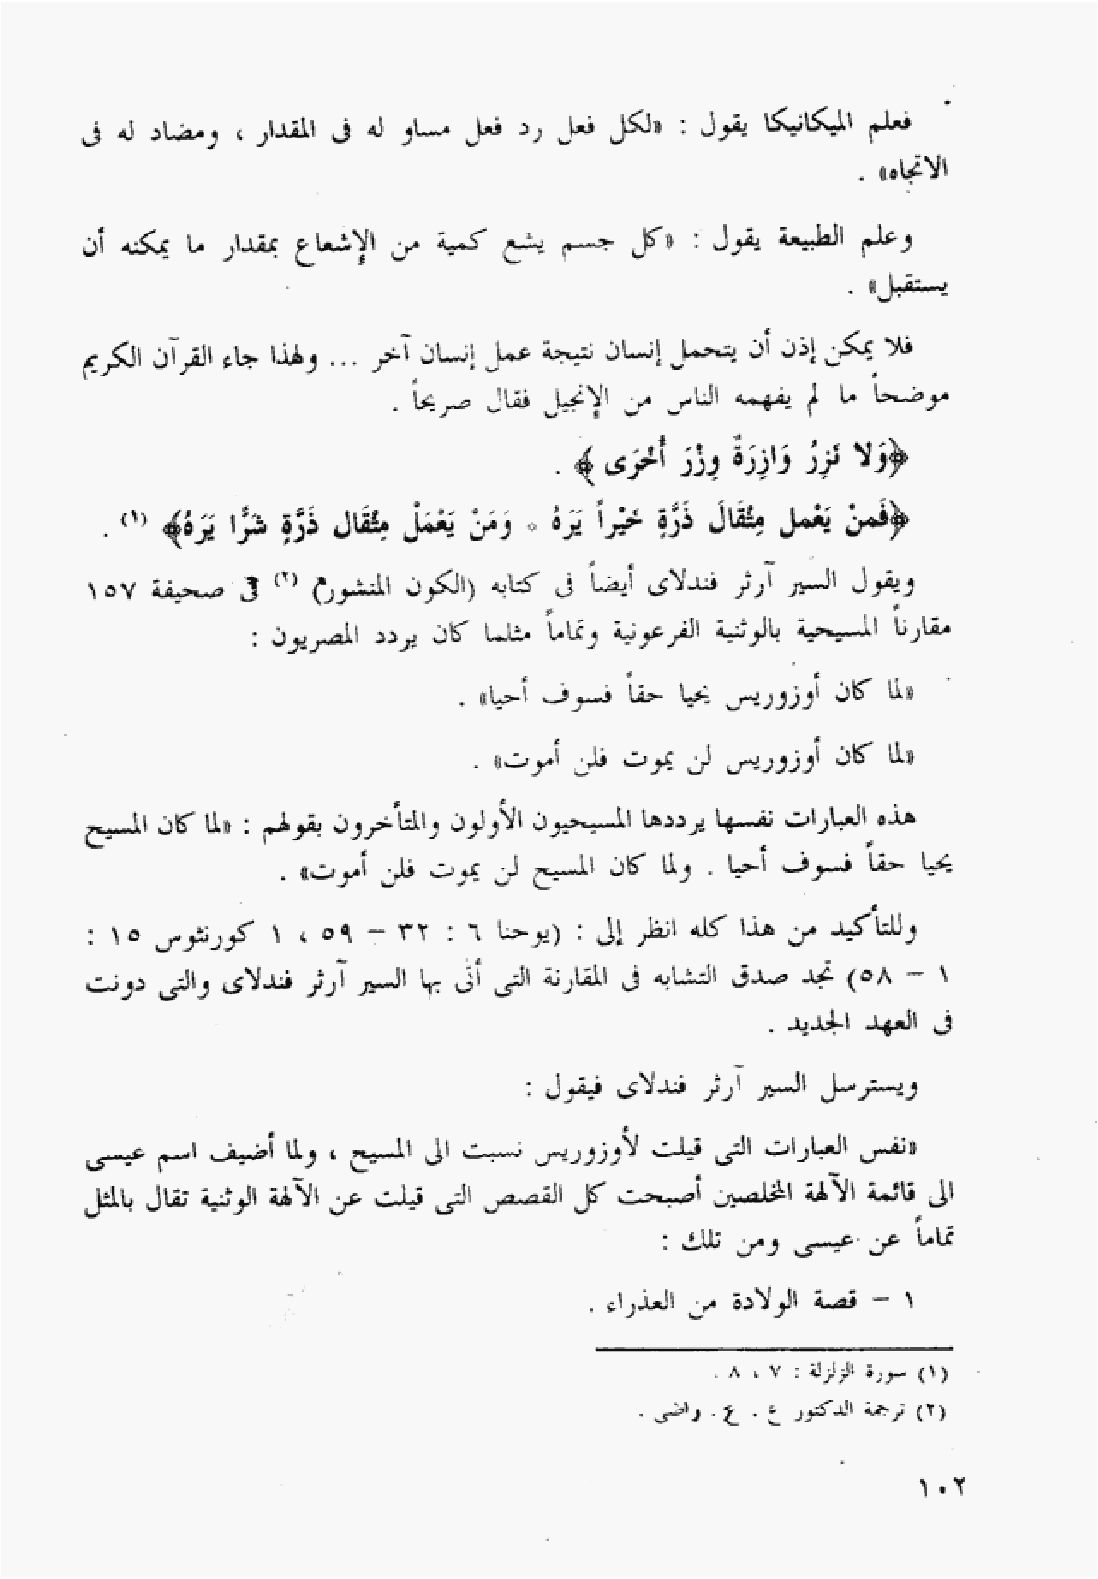 فعلم الميكانيكا يقول : «لكل فعل رد فعل مساو له فى المقدار ، ومضاد له فى
الاتجاه» .
وعلم الطبيعة يقول : «كل جسم يشع كمية من الإشعاع بمقدار ما يمكنه أن
يستقبل» .
فلا يمكن إذن أن يتحمل إنسان نتيجة عمل إنسان آخر ... ولهذا جاء القرآن الكريم
موضحاً ما لم يفهمه الناس من الإنجيل فقال صريحاً .
﴿وَلا تَزِرُ وَازِرَةٌ وِزْرَ أُخْرَى ﴾ .
﴿فَمنْ يَعْمل مِثْقَالَ ذَرَّةٍ خَيْراً يَرَهُ * وَمَنْ يَعْمَلْ مِثْقَال ذَرَّةٍ شَرًّا يَرَهُ﴾ (١) .
ويقول السير آرثر فندلاى أيضاً فى كتابه (الكون المنشور) (٢) فى صحيفة ١٥٧
مقارناً المسيحية بالوثنية الفرعونية وتماماً مثلما كان يردد المصريون :
«لما كان أوزوريس يحيا حقاً فسوف أحيا» .
«لما كان أوزوريس لن يموت فلن أموت» .
هذه العبارات نفسها يرددها المسيحيون الأولون والمتأخرون بقولهم : «لما كان المسيح
يحيا حقاً فسوف أحيا . ولما كان المسيح لن يموت فلن أموت» .
وللتأكيد من هذا كله انظر إلى : (يوحنا ٦ : ٣٢ – ٥٩ ، ١ كورنثوس ١٥ :
١ – ٥٨) تجد صدق التشابه فى المقارنة التى أتى بها السير آرثر فندلاى والتى دونت
فى العهد الجديد .
ويسترسل السير آرثر فندلاى فيقول :
«نفس العبارات التى قيلت لأوزوريس نسبت الى المسيح ، ولما أضيف اسم عيسى
الى قائمة الآلهة المخلصين أصبحت كل القصص التى قيلت عن الآلهة الوثنية تقال بالمثل
تماماً عن عيسى ومن تلك :
١ – قصة الولادة من العذراء .
(١) سورة الزلزلة : ٧ ، ٨ .
(٢) ترجمة الدكتور ع . ع . راضى .
١٠٢